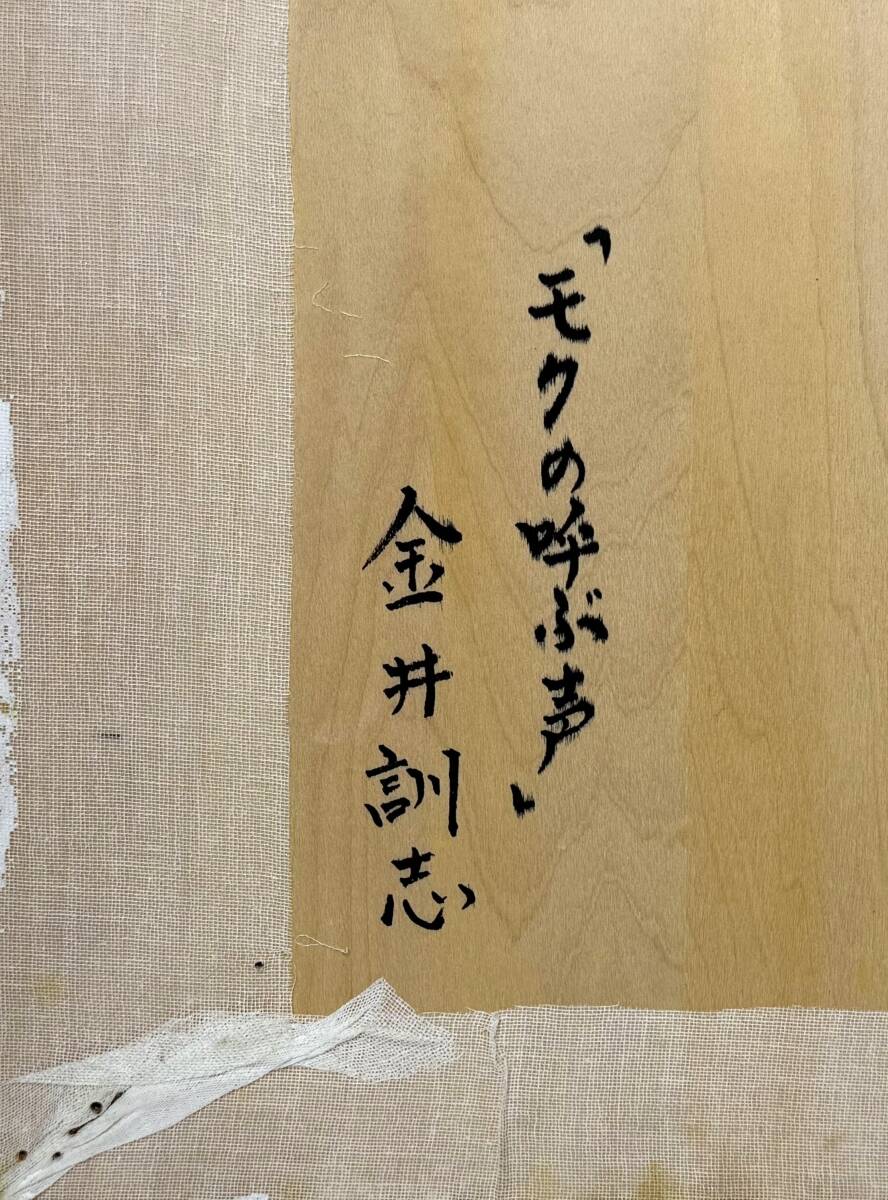 「モクの呼ぶ声」
金井訓志